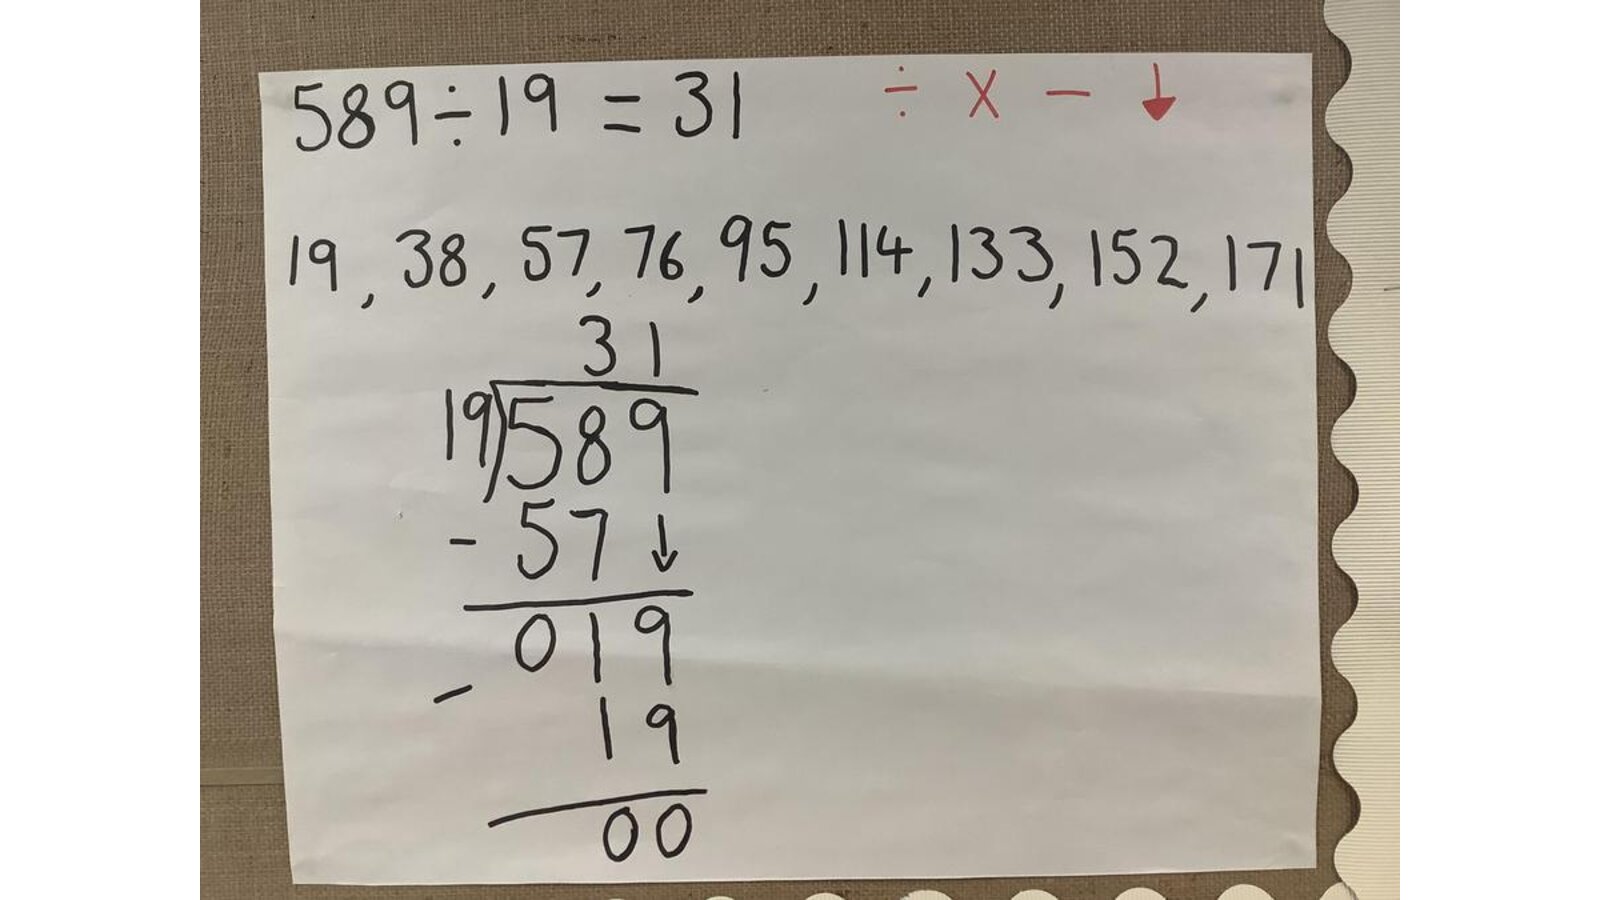 589÷19 = 31 ÷ x − ↓
19, 38, 57, 76, 95, 114, 133, 152, 171
31
19)589
- 57↓
019
- 19
00